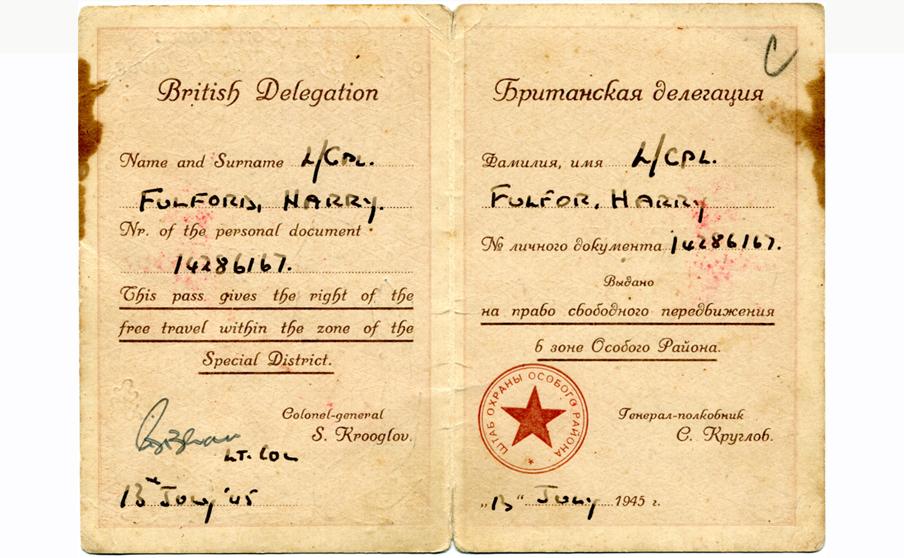 British Delegation
Name and Surname L/CPL.
FULFORD, HARRY.
Nr. of the personal document
14286167.
This pass gives the right of the
free travel within the zone of the
Special District.
Colonel-general
S. Krooglov.
LT. COL
13th July '45
C
Британская делегация
Фамилия, имя L/CPL.
FULFOR, HARRY
№ личного документа 14286167.
Выдано
на право свободного передвижения
в зоне Особого Района.
ШТАБ ОХРАНЫ ОСОБОГО РАЙОНА
Генерал-полковник
С. Круглов.
„13“ July 1945 г.